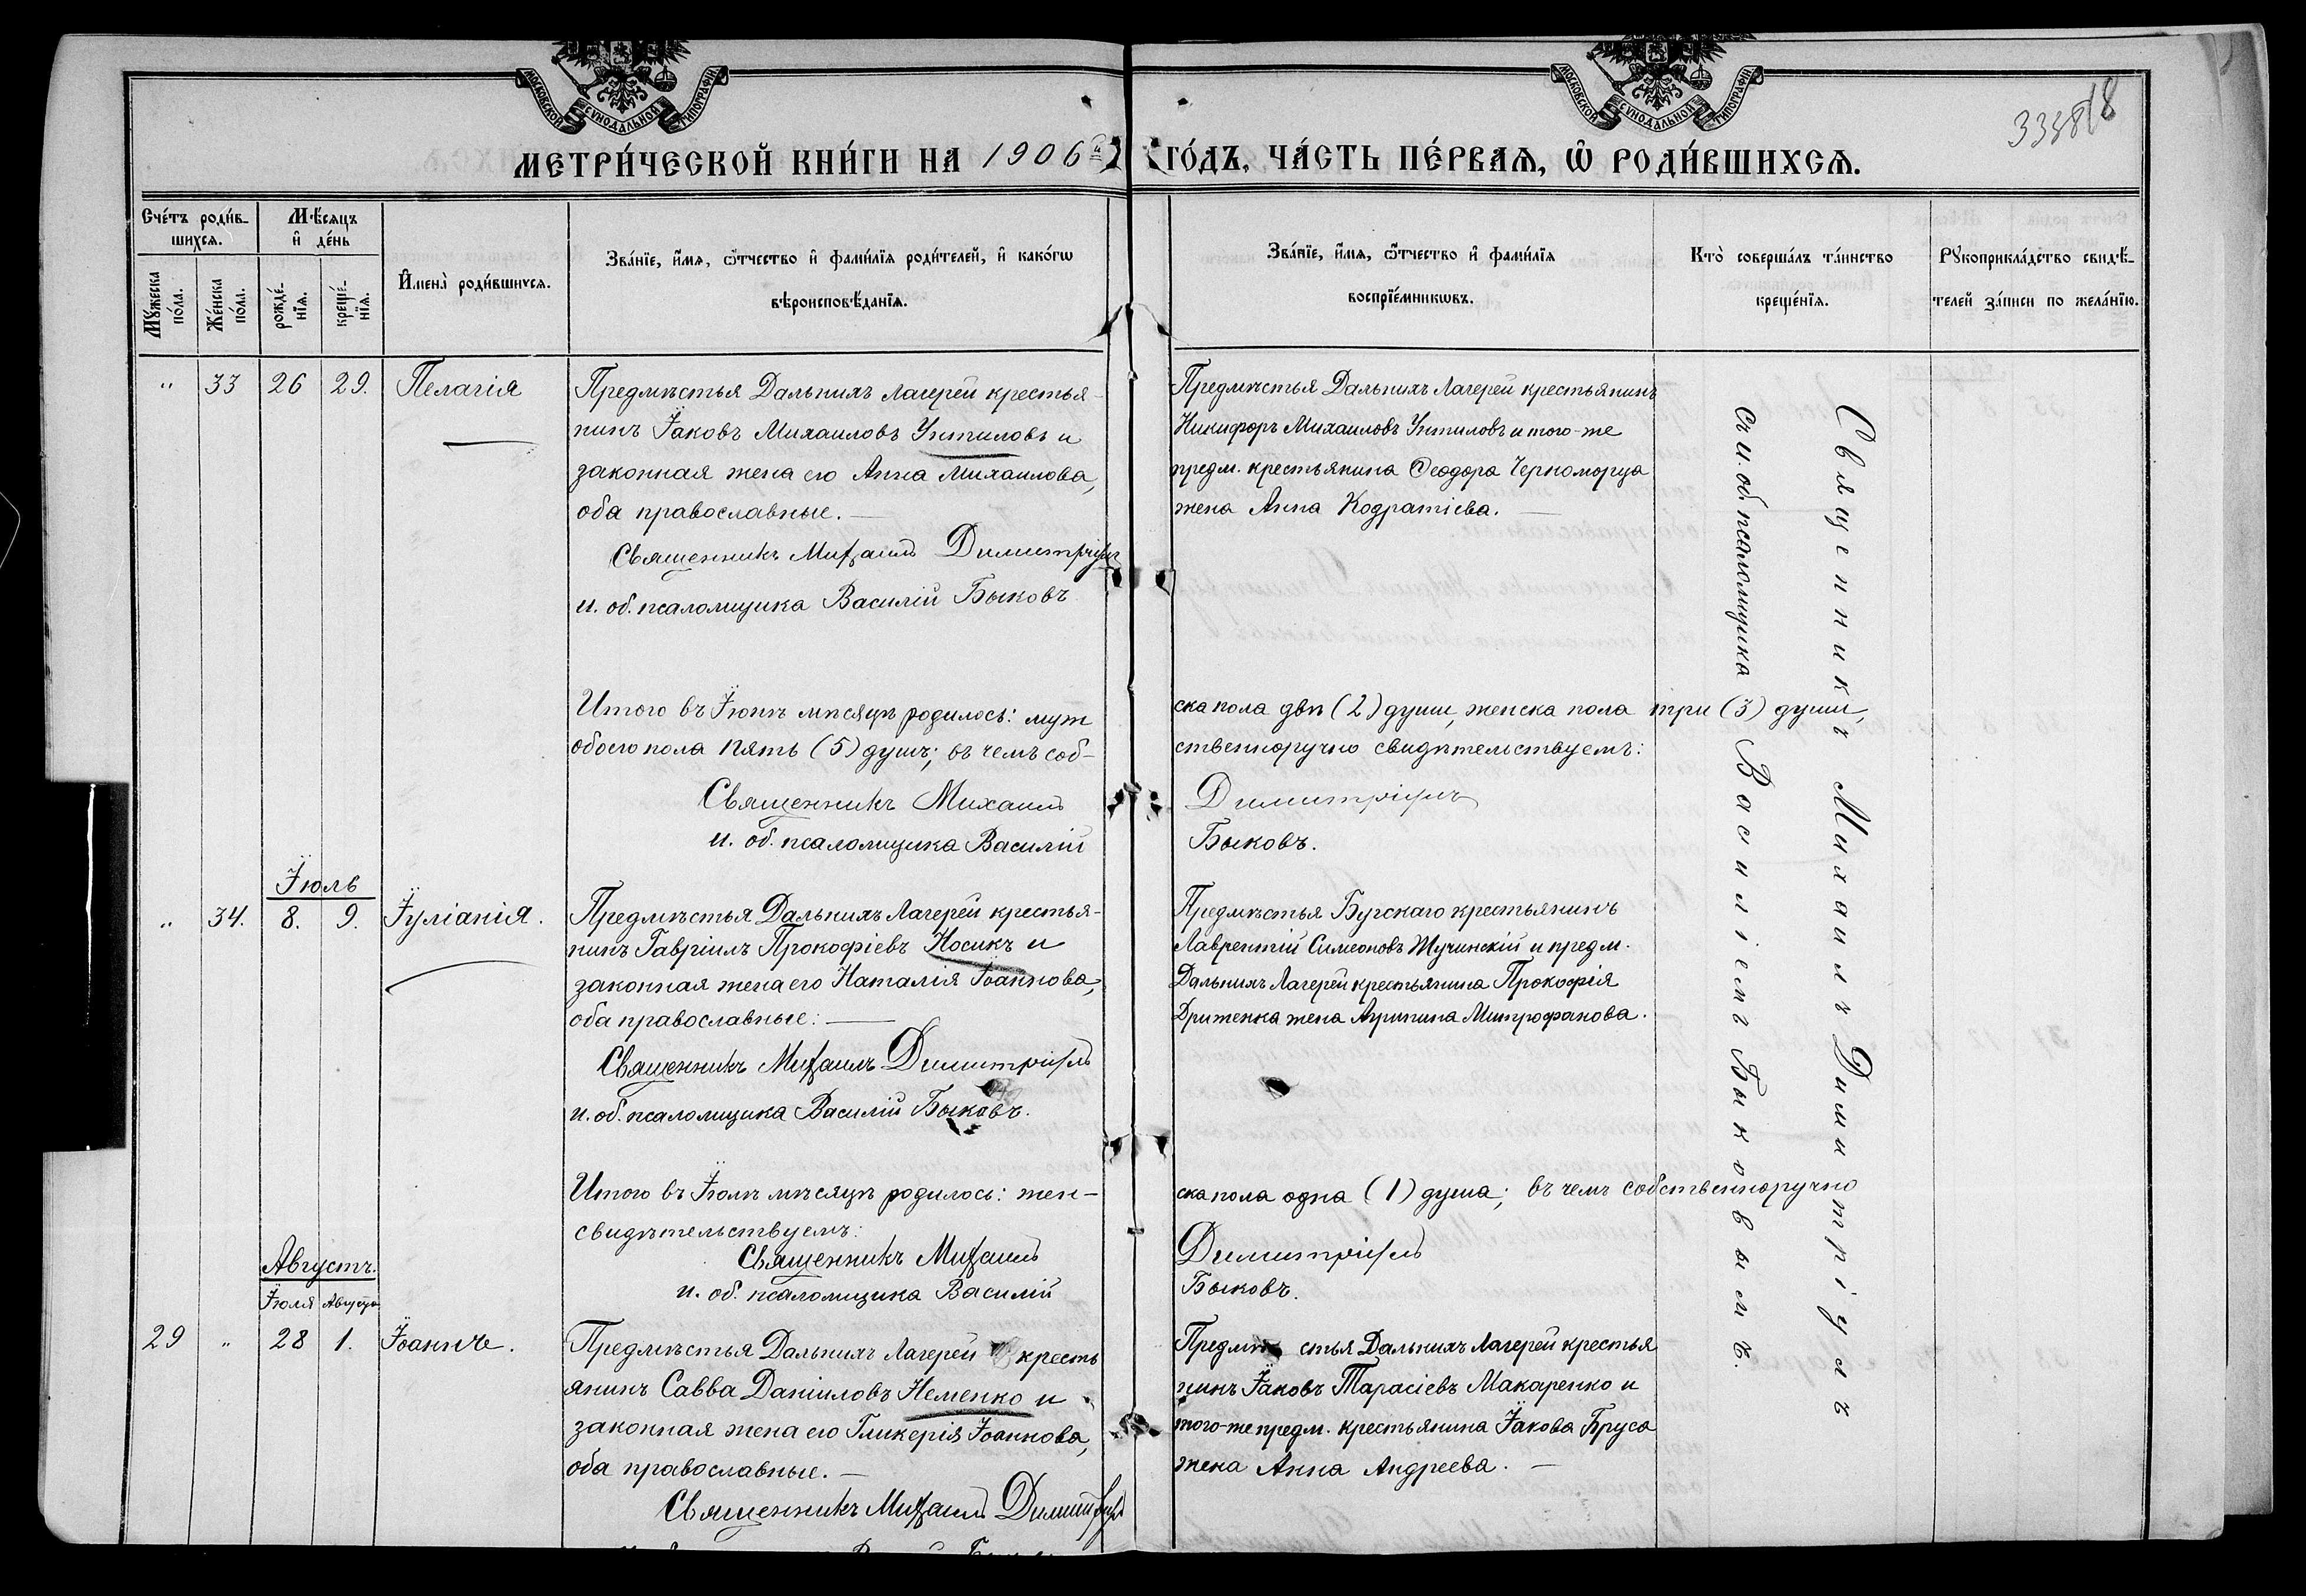 МОСКОВСКОЙ СѴНОДАЛЬНОЙ ТИПОГРАФІИ
МОСКОВСКОЙ СѴНОДАЛЬНОЙ ТИПОГРАФІИ
18
МЕТРИ́ЧЕСКОЙ КНИ́ГИ НА 1906й
ГО́ДЪ, ЧА́СТЬ ПЕ́РВАѦ, Ѡ РОДИ́ВШИХСѦ.
Сче́тъ роди́в-
шихсѧ.
Мѣ́сяцъ
и҆ де́нь
Мꙋ́жеска
по́ла.
Же́нска
по́ла.
рожде́-
нїѧ.
креще́-
нїѧ.
И҆мена̀ роди́вшихсѧ.
Зва́нїе, и҆́мѧ, ѻ҆́тчество и҆ фами́лїѧ роди́телей, и҆ како́гѡ
вѣроисповѣ́данїѧ.
Зва́нїе, и҆́мѧ, ѻ҆́тчество и҆ фами́лїѧ
воспрїе́мникѡвъ.
Кто̀ соверша́лъ та́инство
креще́нїѧ.
Рꙋкоприкла́дство свидѣ́-
телей за́писи по жела́нїю.
" 33 26 29. Пелагія
Предмѣстья Дальнихъ Лагерей крестья-
нинъ Іаковъ Михаиловъ Унтиловъ и
законная жена его Анна Михаилова,
оба православные. —
Священникъ Михаилъ Димитріумъ
и. об. псаломщика Василій Быковъ
Предмѣстья Дальнихъ Лагерей крестьянинъ
Никифоръ Михаиловъ Унтиловъ и того-же
предм. крестьянина Ѳеодора Черноморца
жена Анна Кодратіева. —
Священникъ Михаилъ Димитріумъ
съ и. об. псаломщика Василіемъ Быковымъ.
Итого въ Іюнѣ мѣсяцѣ родилось: муж
ска пола двѣ (2) души, женска пола три (3) души,
обоего пола пять (5) душъ; въ чемъ соб-
ственноручно свидѣтельствуемъ:
Священникъ Михаилъ Димитріумъ
и. об. псаломщика Василій Быковъ.
Іюль
" 34. 8. 9. Іуліанія.
Предмѣстья Дальнихъ Лагерей крестья-
нинъ Гавріилъ Прокофіевъ Носикъ и
законная жена его Наталія Іоаннова,
оба православные: —
Священникъ Михаилъ Димитріумъ
и. об. псаломщика Василій Быковъ.
Предмѣстья Бугскаго крестьянинъ
Лаврентій Симеоновъ Жучинскій и предм.
Дальнихъ Лагерей крестьянина Прокофія
Дриженка жена Агрипина Митрофанова.
Итого въ Іюлѣ мѣсяцѣ родилось: жен-
ска пола одна (1) душа; въ чемъ собственноручно
свидѣтельствуемъ:
Священникъ Михаилъ Димитріумъ
и. об. псаломщика Василій Быковъ.
Августъ.
Іюля Августа
29 " 28 1. Іоанн
Предмѣстья Дальнихъ Лагерей кресть
янинъ Савва Даніиловъ Неменко и
законная жена его Гликерія Іоаннова,
оба православные. —
Священникъ Михаилъ Димитріумъ
Предмѣстья Дальнихъ Лагерей крестья
нинъ Іаковъ Тарасіевъ Макаренко и
того-же предм. крестьянина Іакова Бруса
жена Анна Андреева. —